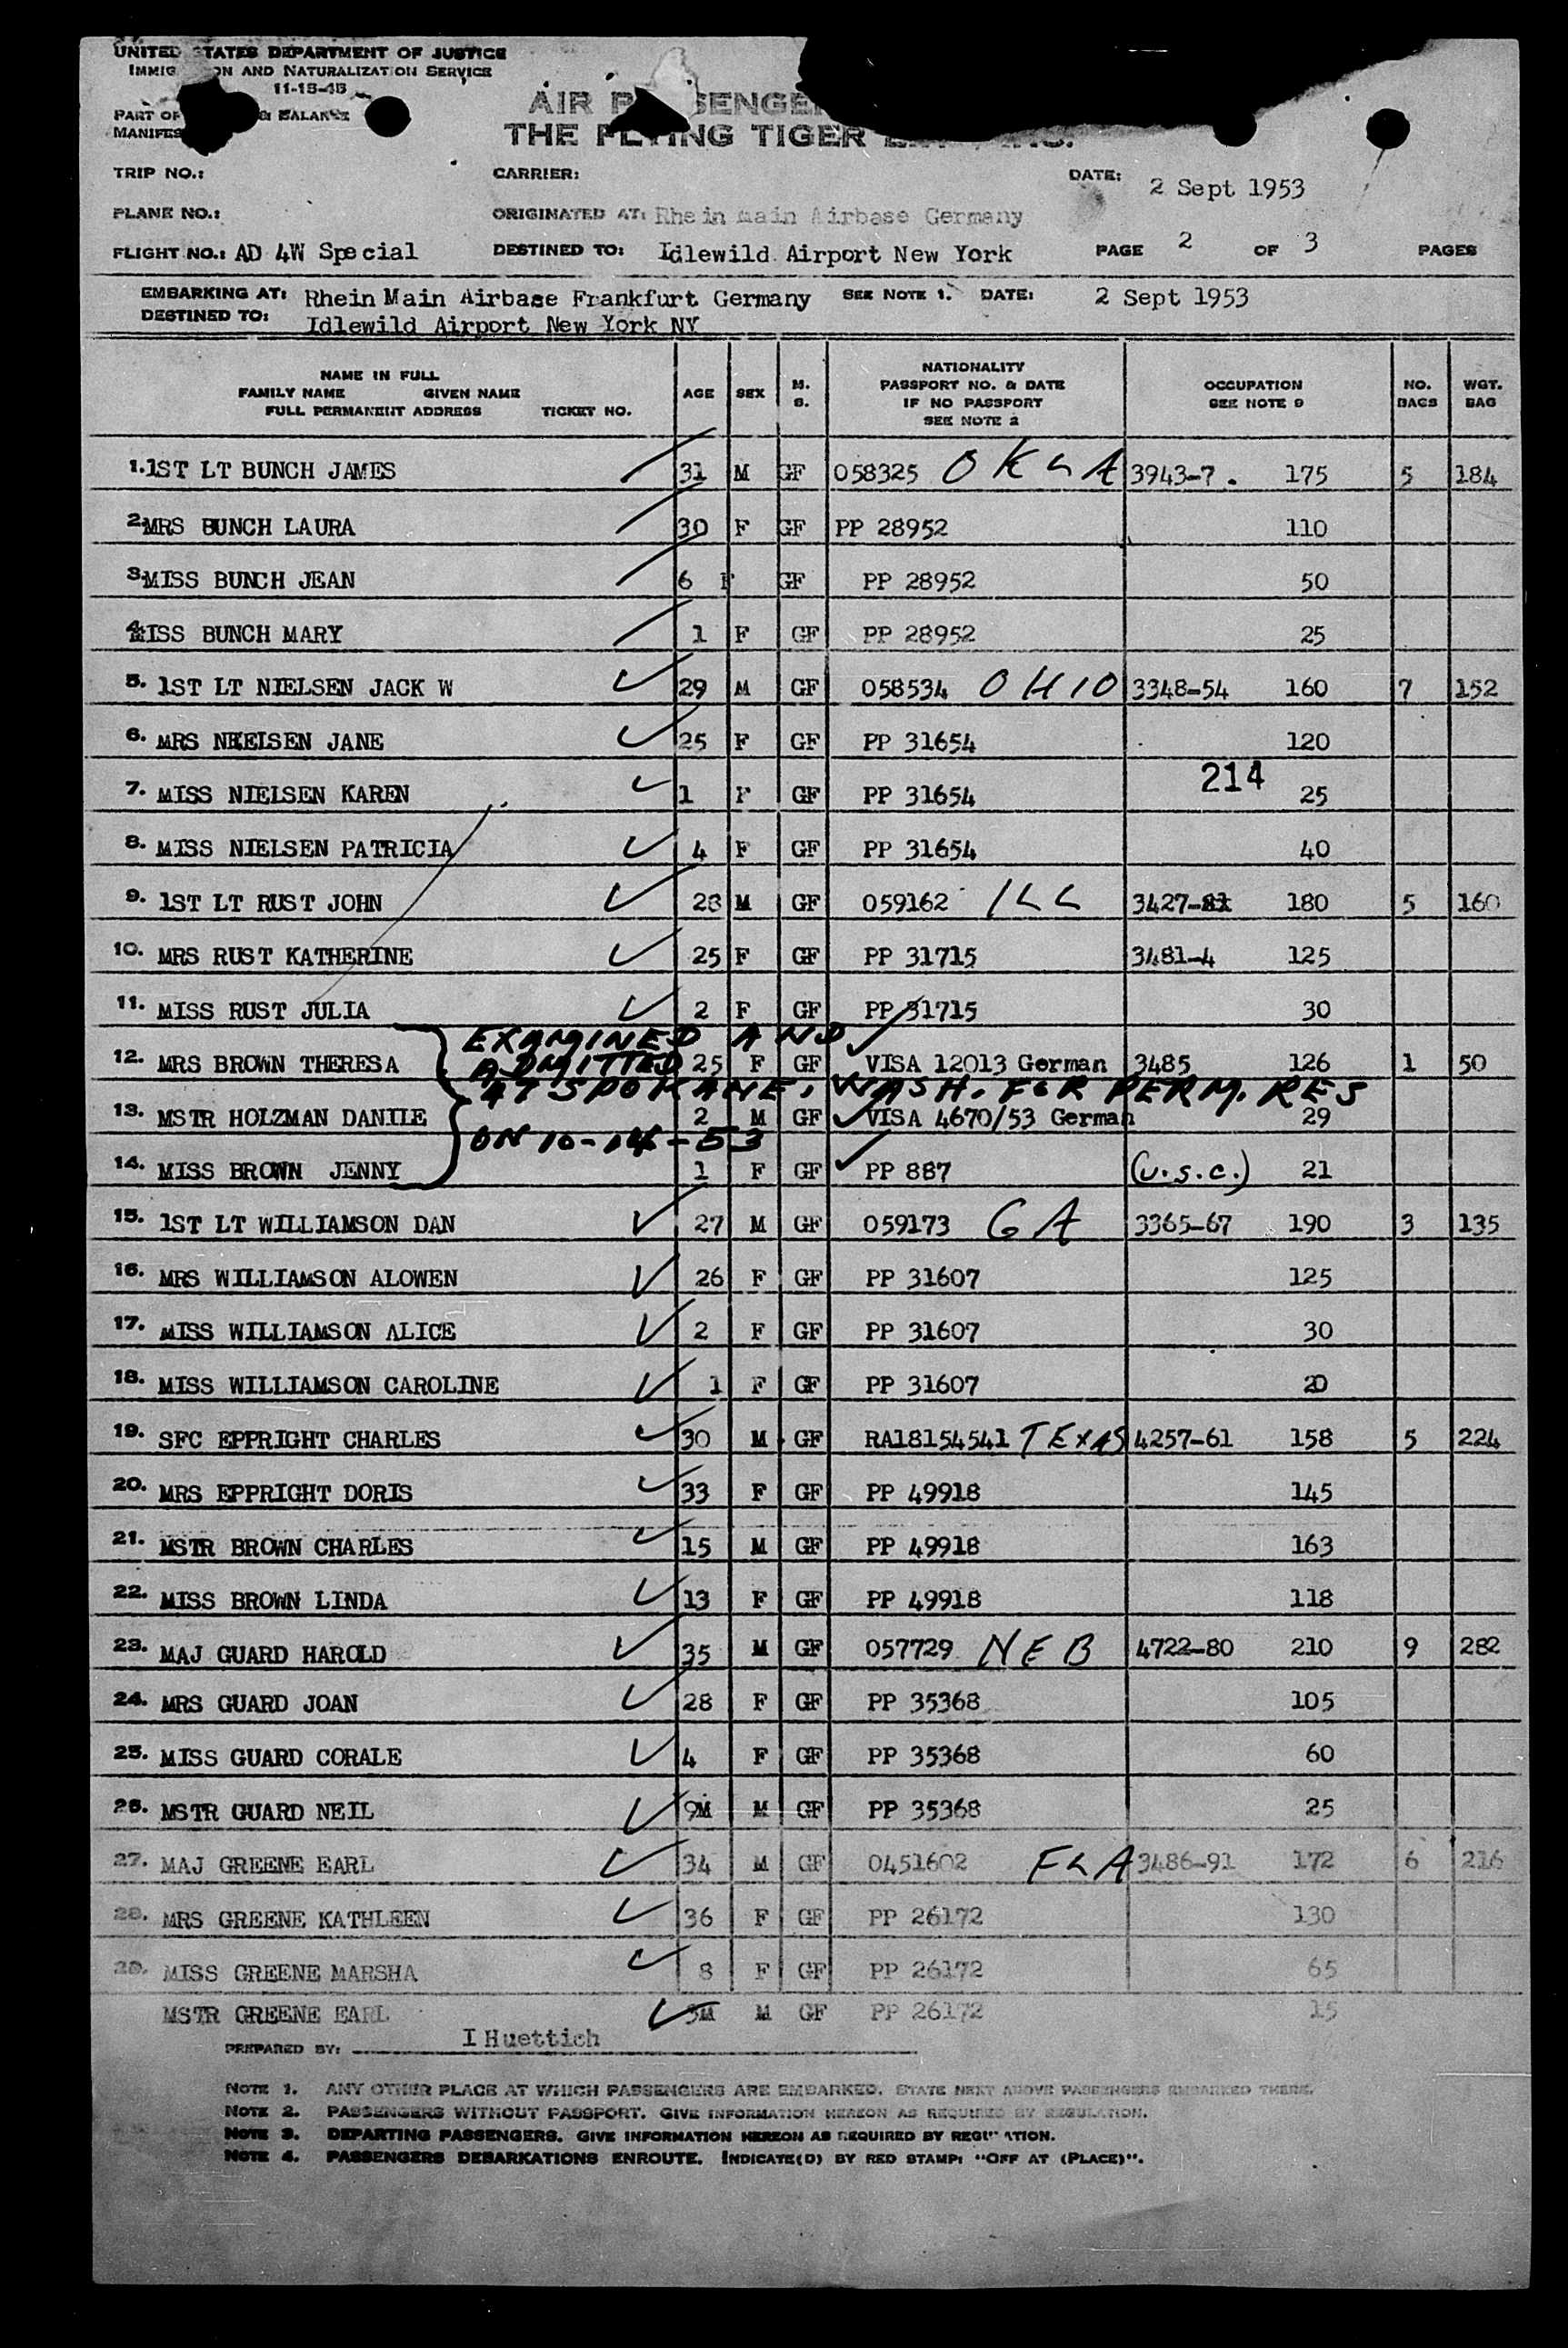 UNITED STATES DEPARTMENT OF JUSTICE
IMMIG ON AND NATURALIZATION SERVICE
11-18-48
PART OF & BALANCE
MANIFES
AIR P SENGE
THE FLYING TIGER
TRIP NO.: CARRIER: DATE: 2 Sept 1953
PLANE NO.: ORIGINATED AT: Rhein main Airbase Germany
FLIGHT NO.: AD 4W Special DESTINED TO: Idlewild Airport New York PAGE 2 OF 3 PAGES
EMBARKING AT: Rhein Main Airbase Frankfurt Germany SEE NOTE 1. DATE: 2 Sept 1953
DESTINED TO: Idlewild Airport New York NY
NAME IN FULL
FAMILY NAME GIVEN NAME
FULL PERMANENT ADDRESS TICKET NO.
AGE SEX M. S.
NATIONALITY
PASSPORT NO. & DATE
IF NO PASSPORT
SEE NOTE 2
OCCUPATION
SEE NOTE 3
NO. BAGS
WGT. BAG
1. 1ST LT BUNCH JAMES 31 M GF 058325 OKLA 3943-7. 175 5 184
2. MRS BUNCH LAURA 30 F GF PP 28952 110
3. MISS BUNCH JEAN 6 F GF PP 28952 50
4. MISS BUNCH MARY 1 F GF PP 28952 25
5. 1ST LT NIELSEN JACK W 29 M GF 058534 OHIO 3348-54 160 7 152
6. MRS NEEISEN JANE 25 F GF PP 31654 120
214
7. MISS NIELSEN KAREN 1 F GF PP 31654 25
8. MISS NIELSEN PATRICIA 4 F GF PP 31654 40
9. 1ST LT RUST JOHN 28 M GF 059162 ILL 3427- 180 5 160
10. MRS RUST KATHERINE 25 F GF PP 31715 3481-4 125
11. MISS RUST JULIA 2 F GF PP 31715 30
EXAMINED AND
ADMITTED
12. MRS BROWN THERESA 25 F GF VISA 12013 German 3485 126 1 50
AT SPOKANE, WASH. FOR PERM. RES
13. MSTR HOLZMAN DANIIE 2 M GF VISA 4670/53 German 29
ON 10-14-53
14. MISS BROWN JENNY 1 F GF PP 887 (U.S.C.) 21
15. 1ST LT WILLIAMSON DAN 27 M GF 059173 GA 3365-67 190 3 135
16. MRS WILLIAMSON ALOWEN 26 F GF PP 31607 125
17. MISS WILLIAMSON ALICE 2 F GF PP 31607 30
18. MISS WILLIAMSON CAROLINE 1 F GF PP 31607 20
19. SFC EPPRIGHT CHARLES 30 M GF RA18154541 TEXAS 4257-61 158 5 224
20. MRS EPPRIGHT DORIS 33 F GF PP 49918 145
21. MSTR BROWN CHARLES 15 M GF PP 49918 163
22. MISS BROWN LINDA 13 F GF PP 49918 118
23. MAJ GUARD HAROLD 35 M GF 057729 NEB 4722-80 210 9 282
24. MRS GUARD JOAN 28 F GF PP 35368 105
25. MISS GUARD CORALE 4 F GF PP 35368 60
26. MSTR GUARD NEIL 9M M GF PP 35368 25
27. MAJ GREENE EARL 34 M GF 0451602 FLA 3486-91 172 6 216
28. MRS GREENE KATHLEEN 36 F GF PP 26172 130
29. MISS GREENE MARSHA 8 F GF PP 26172 65
MSTR GREENE EARL M GF PP 26172 15
PREPARED BY: I Huettich
NOTE 1. ANY OTHER PLACE AT WHICH PASSENGERS ARE EMBARKED. STATE NEXT ABOVE PASSENGERS EMBARKED THERE.
NOTE 2. PASSENGERS WITHOUT PASSPORT. GIVE INFORMATION HEREON AS REQUIRED BY REGULATION.
NOTE 3. DEPARTING PASSENGERS. GIVE INFORMATION HEREON AS REQUIRED BY REGU ATION.
NOTE 4. PASSENGERS DEBARKATIONS ENROUTE. INDICATE(D) BY RED STAMP: "OFF AT (PLACE)".